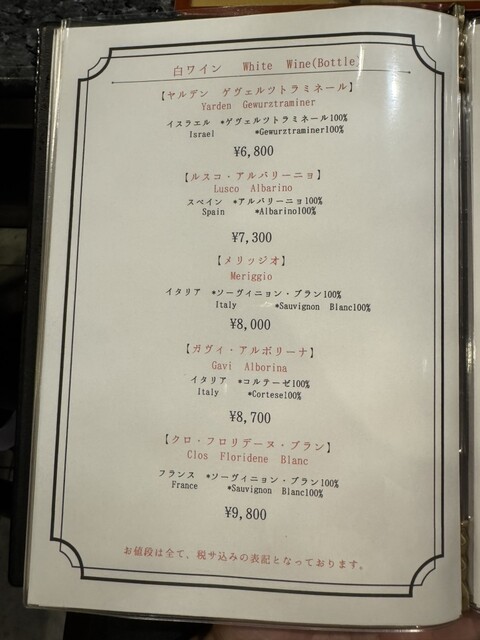 白ワイン White Wine(Bottle)
【ヤルデン ゲヴェルツトラミネール】
Yarden Gewurztraminer
イスラエル *ゲヴェルツトラミネール100%
Israel *Gewurztraminer100%
¥6,800
【ルスコ・アルバリーニョ】
Lusco Albarino
スペイン *アルバリーニョ100%
Spain *Albarino100%
¥7,300
【メリッジオ】
Meriggio
イタリア *ソーヴィニョン・ブラン100%
Italy *Sauvignon Blanc100%
¥8,000
【ガヴィ・アルボリーナ】
Gavi Alborina
イタリア *コルテーゼ100%
Italy *Cortese100%
¥8,700
【クロ・フロリデーヌ・ブラン】
Clos Floridene Blanc
フランス *ソーヴィニョン・ブラン100%
France *Sauvignon Blanc100%
¥9,800
お値段は全て、税サ込みの表記となっております。